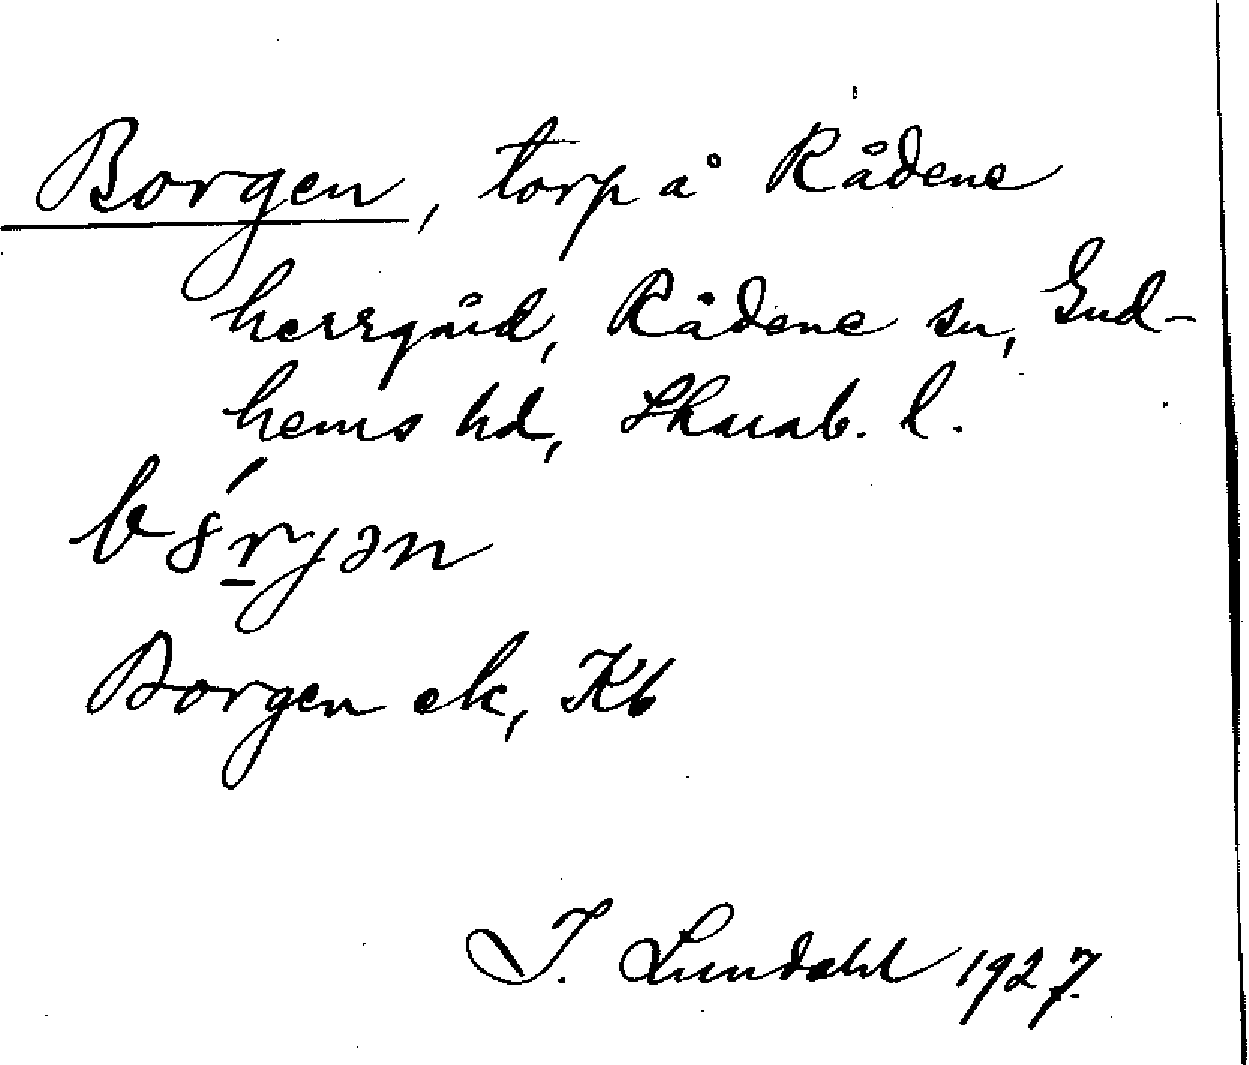 Borgen, torp å Rådene
herrgård, Rådene sn, Gud-
hems hd, Skarab. l.
Borgen ek, Kb
I. Lundahl 1927.